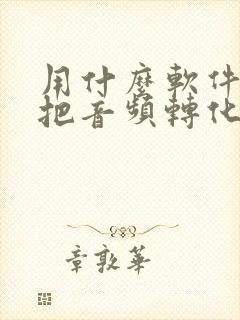 用什麼軟件
把音頻轉化
章敦華